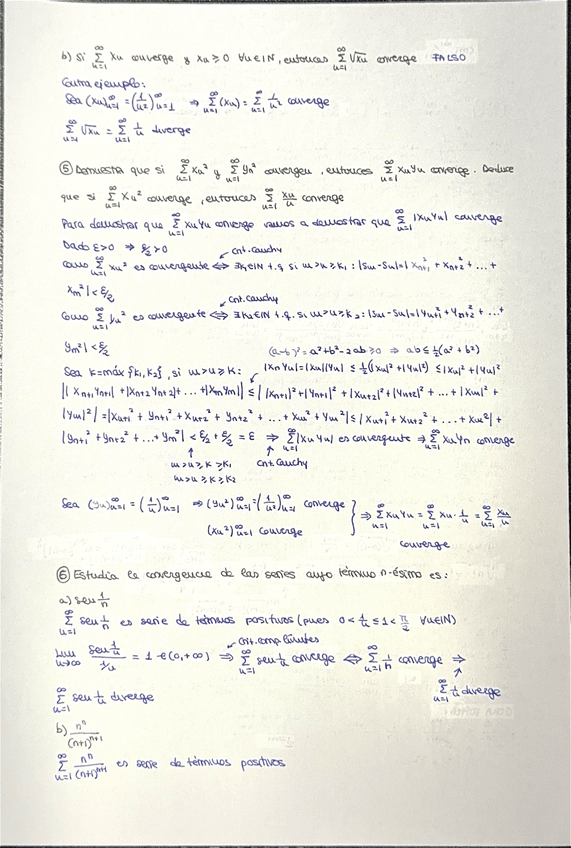 b) Si ∑_{n=1}^∞ xn converge y xn ≥ 0 ∀n∈ℕ, entonces ∑_{n=1}^∞ √xn converge FALSO
Contraejemplo:
Sea (xn)_{n=1}^∞ = (1/n²)_{n=1}^∞ ⇒ ∑_{n=1}^∞ (xn) = ∑_{n=1}^∞ 1/n² converge
∑_{n=1}^∞ √xn = ∑_{n=1}^∞ 1/n diverge
⑤ Demuestra que si ∑_{n=1}^∞ xn² y ∑_{n=1}^∞ yn² convergen, entonces ∑_{n=1}^∞ xn yn converge. Deduce
que si ∑_{n=1}^∞ xn² converge, entonces ∑_{n=1}^∞ xn/n converge
Para demostrar que ∑_{n=1}^∞ xn yn converge vamos a demostrar que ∑_{n=1}^∞ |xn yn| converge
Dado ε>0 ⇒ ε/2 >0
Crit. Cauchy
Como ∑_{n=1}^∞ xn² es convergente ⇔ ∃k₁∈ℕ t.q. si m>n≥k₁ : |Sm - Sn| = | x_{n+1}² + x_{n+2}² + ... +
x_m² | < ε/2
Crit. Cauchy
Como ∑_{n=1}^∞ yn² es convergente ⇔ ∃k₂∈ℕ t.q. si m>n≥k₂ : |Sm - Sn| = |y_{n+1}² + y_{n+2}² + ... +
y_m² | < ε/2
(a-b)² = a²+b²-2ab ≥ 0 ⇒ ab ≤ ½(a² + b²)
|xn yn| = |xn||yn| ≤ ½(|xn|² + |yn|²) ≤ |xn|² + |yn|²
Sea k = máx {k₁, k₂}, si m>n≥k:
| |x_{n+1} y_{n+1}| + |x_{n+2} y_{n+2}| + ... + |x_m y_m| | ≤ | |x_{n+1}|² + |y_{n+1}|² + |x_{n+2}|² + |y_{n+2}|² + ... + |x_m|² +
|y_m|² | = |x_{n+1}² + y_{n+1}² + x_{n+2}² + y_{n+2}² + ... + x_m² + y_m²| ≤ |x_{n+1}² + x_{n+2}² + ... + x_m²| +
|y_{n+1}² + y_{n+2}² + ... + y_m²| < ε/2 + ε/2 = ε ⇒ ∑_{n=1}^∞ |xn yn| es convergente ⇒ ∑_{n=1}^∞ xn yn converge
m>n≥k≥k₁ Crit. Cauchy
m>n≥k≥k₂
Sea (yn)_{n=1}^∞ = (1/n)_{n=1}^∞ ⇒ (yn²)_{n=1}^∞ = (1/n²)_{n=1}^∞ converge
(xn²)_{n=1}^∞ converge
} ⇒ ∑_{n=1}^∞ xn yn = ∑_{n=1}^∞ xn · 1/n = ∑_{n=1}^∞ xn/n
converge
⑥ Estudia la convergencia de las series cuyo término n-ésimo es:
a) sen 1/n
∑_{n=1}^∞ sen 1/n es serie de términos positivos (pues 0 < 1/n ≤ 1 < π/2 ∀n∈ℕ)
Crit. comp límites
Lim_{n→∞} (sen 1/n)/(1/n) = 1 ∈ (0, +∞) ⇒ ∑_{n=1}^∞ sen 1/n converge ⇔ ∑_{n=1}^∞ 1/n converge ⇒
∑_{n=1}^∞ 1/n diverge
∑_{n=1}^∞ sen 1/n diverge
b) n^n/(n+1)^{n+1}
∑_{n=1}^∞ n^n/(n+1)^{n+1} es serie de términos positivos